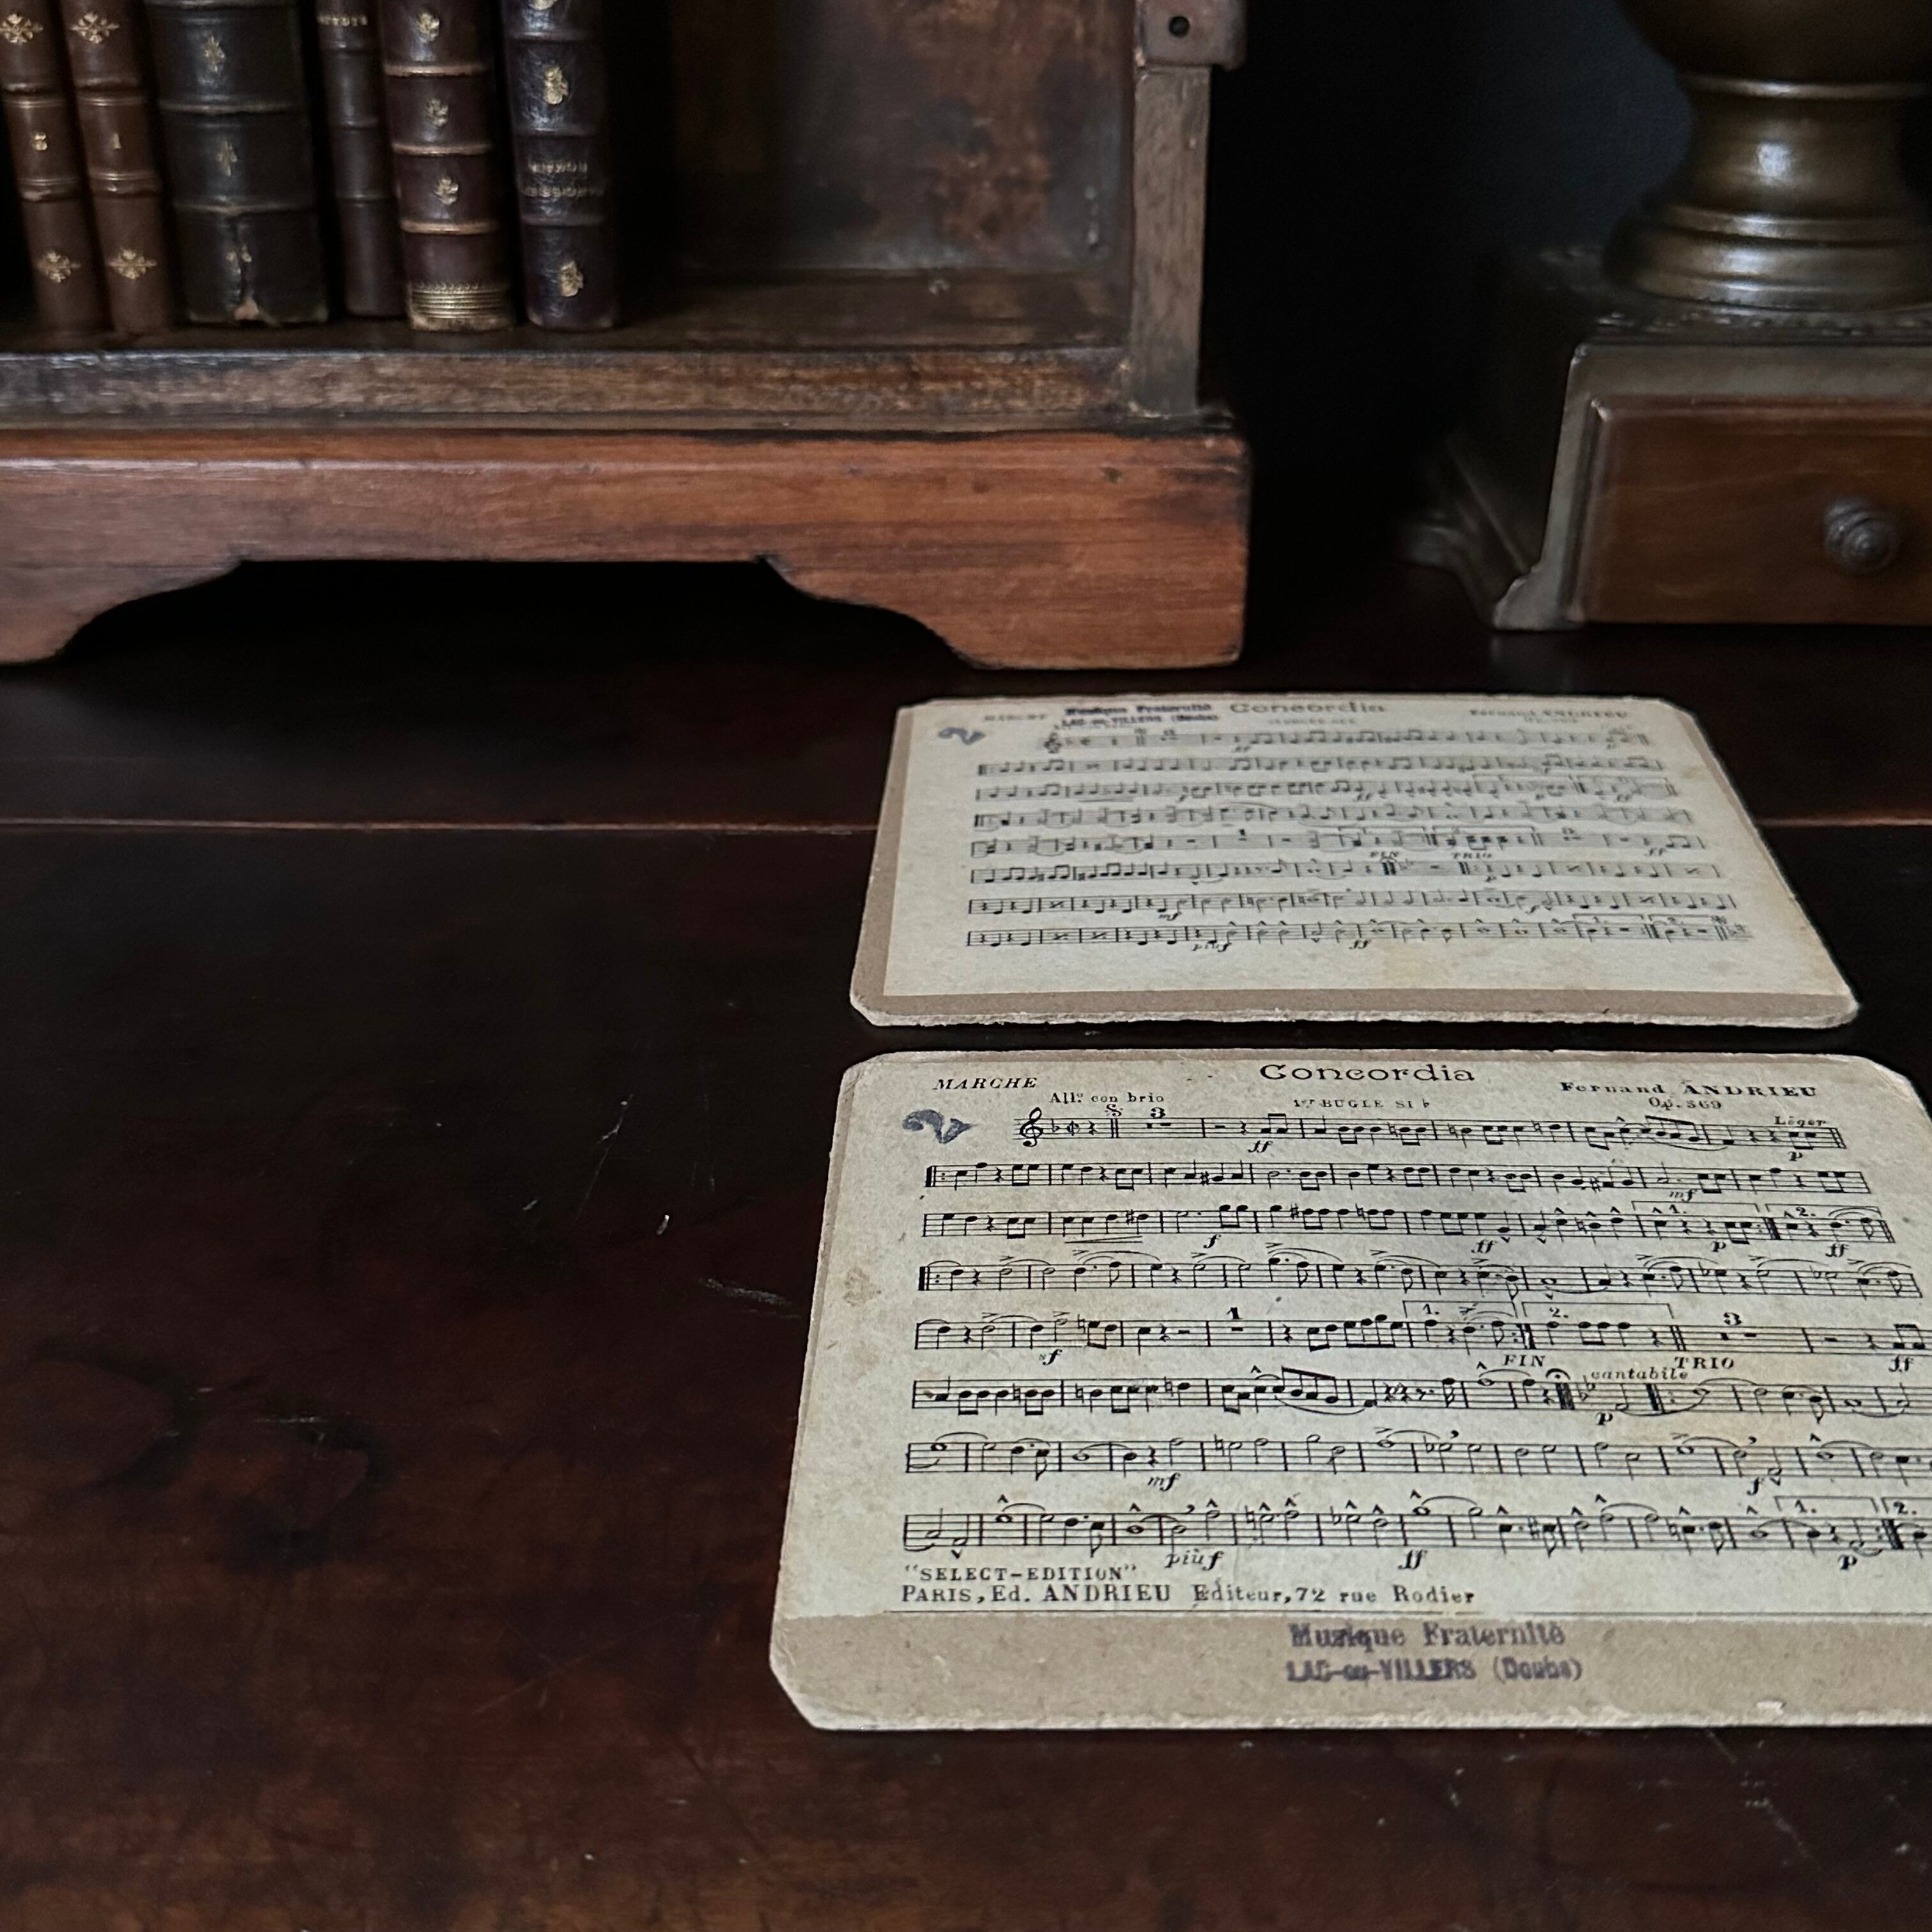 3
1
MARCHE
Musique Fraternité
LAC-ou-VILLERS (Doubs)
Concordia
Fernand ANDRIEU
2
ff
ff
FIN
TRIO
ff
mf
più f
ff
1.
2.
MARCHE
Concordia
Fernand ANDRIEU
All.º con brio
1er BUGLE SI ♭
Op. 369
2
3
Léger
ff
p
mf
1.
2.
f
ff
p
ff
1
1.
2.
3
sf
FIN
TRIO
ff
cantabile
p
mf
f
1.
2.
più f
ff
p
"SELECT-EDITION"
PARIS, Ed. ANDRIEU Editeur, 72 rue Rodier
Musique Fraternité
LAC-ou-VILLERS (Doubs)